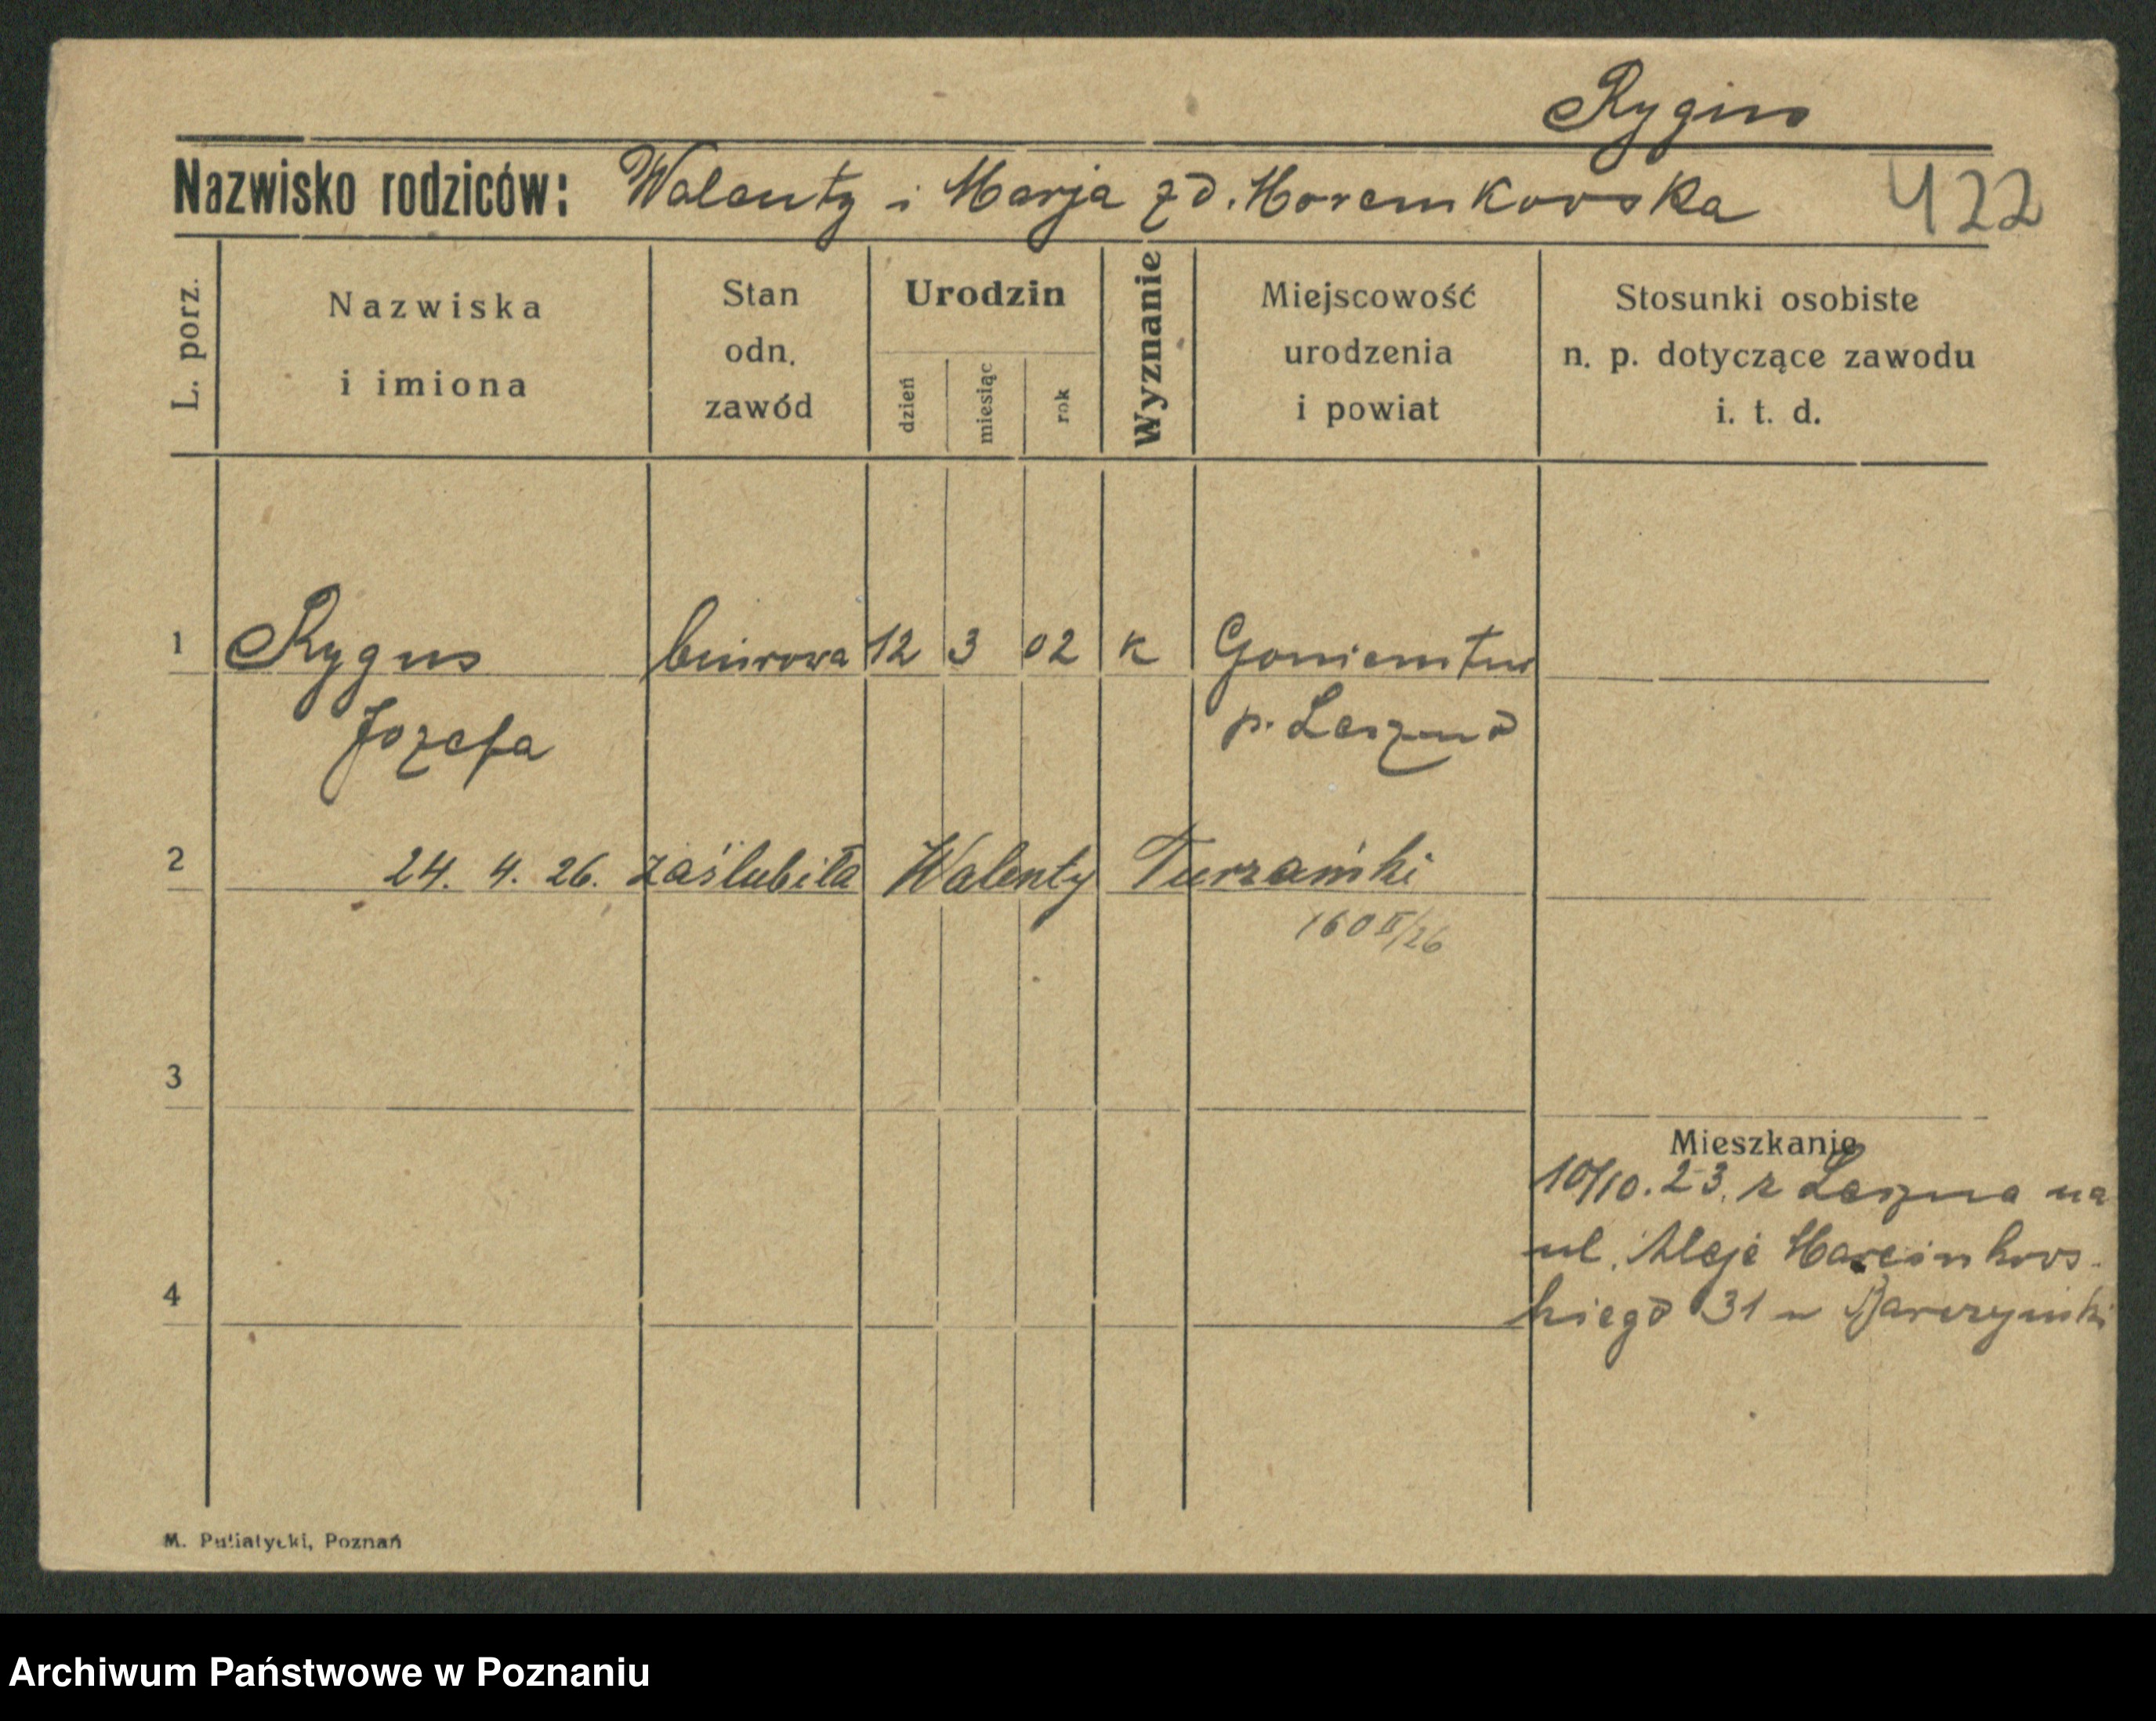 Rygus
Nazwisko rodziców: Walenty i Marja zd. 422
L. porz.
Nazwiska i imiona
Stan odn. zawód
Urodzin
dzień
miesiąc
rok
Wyznanie
Miejscowość urodzenia i powiat
Stosunki osobiste n. p. dotyczące zawodu i. t. d.
1 Rygus biurowa 12 3 02 K
Jozefa p. Leszno
2 24. 4. 26. zaślubiła Walenty Turzański
160 II/26
3
Mieszkanie
10/10. 23. z Leszna na
ul. Aleje Marcinkows-
4 kiego 31 u
M. Putiatycki, Poznań
Archiwum Państwowe w Poznaniu